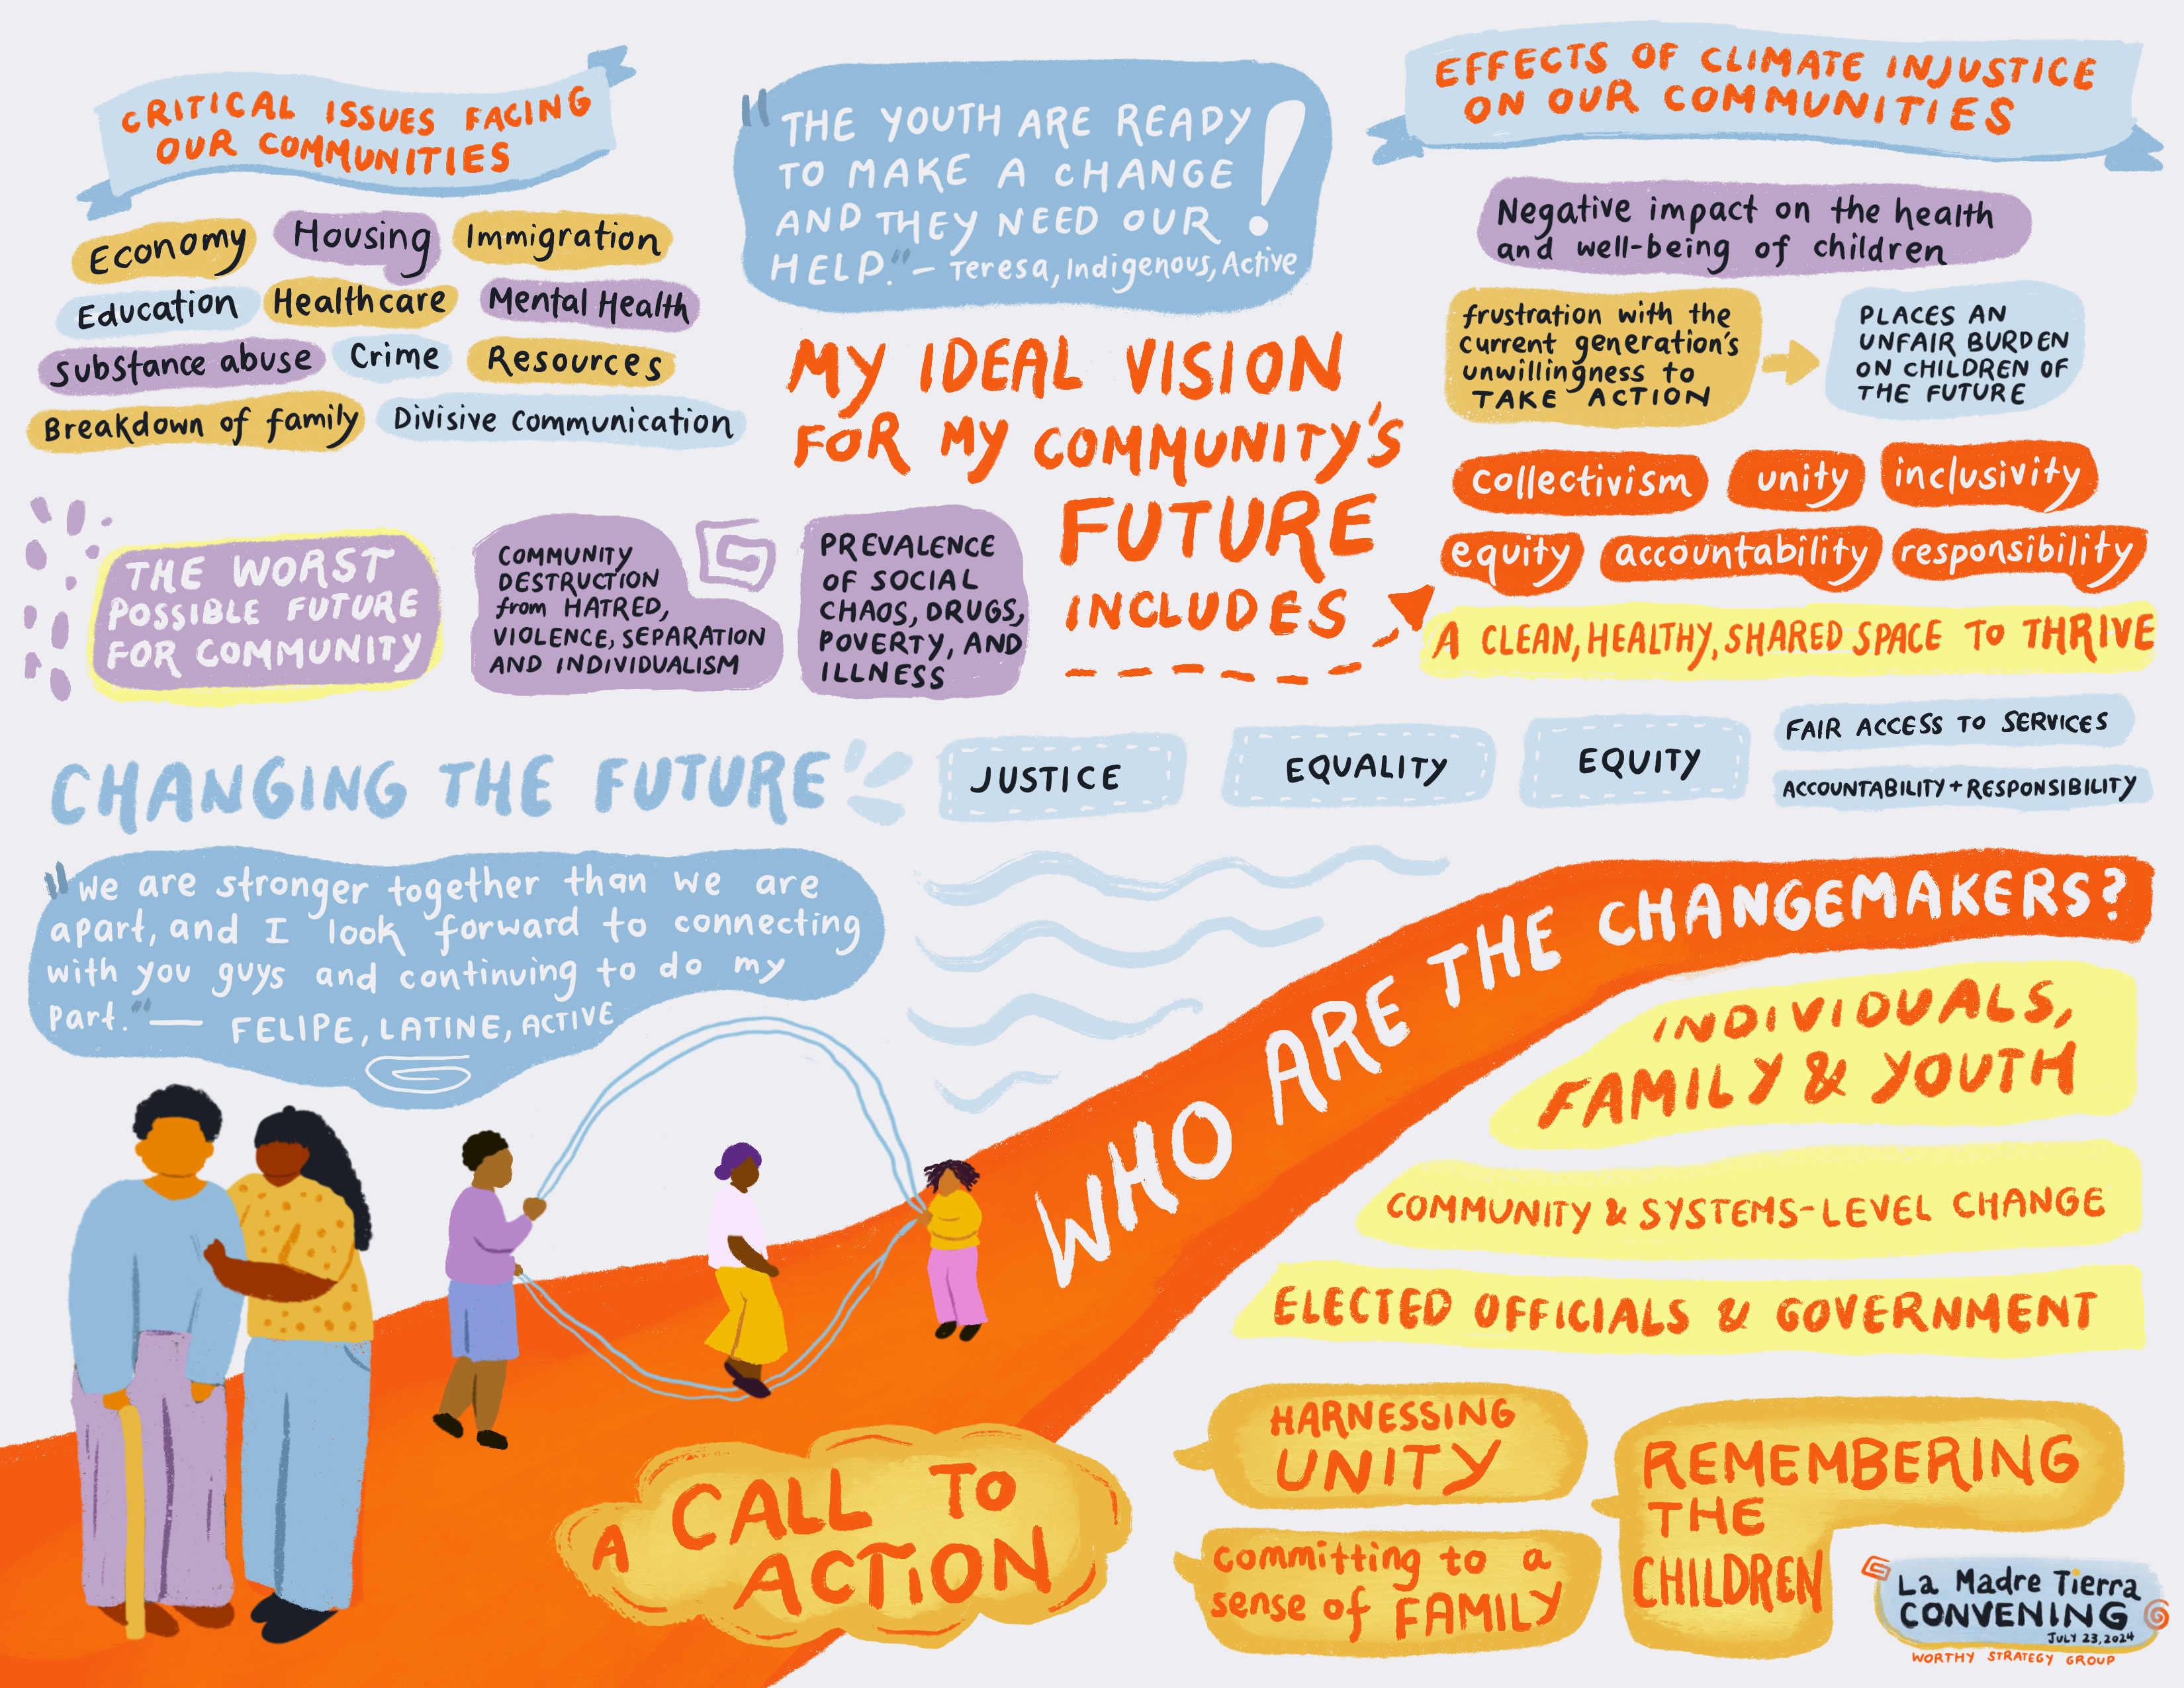 CRITICAL ISSUES FACING
OUR COMMUNITIES
Economy
Housing
Immigration
Education
Healthcare
Mental Health
Substance abuse
Crime
Resources
Breakdown of family
Divisive Communication
"THE YOUTH ARE READY
TO MAKE A CHANGE
AND THEY NEED OUR
HELP."! – Teresa, Indigenous, Active
EFFECTS OF CLIMATE INJUSTICE
ON OUR COMMUNITIES
Negative impact on the health
and well-being of children
frustration with the
current generation's
unwillingness to
TAKE ACTION
PLACES AN
UNFAIR BURDEN
ON CHILDREN OF
THE FUTURE
MY IDEAL VISION
FOR MY COMMUNITY'S
FUTURE
INCLUDES
collectivism
unity
inclusivity
equity
accountability
responsibility
A CLEAN, HEALTHY, SHARED SPACE TO THRIVE
THE WORST
POSSIBLE FUTURE
FOR COMMUNITY
COMMUNITY
DESTRUCTION
from HATRED,
VIOLENCE, SEPARATION
AND INDIVIDUALISM
PREVALENCE
OF SOCIAL
CHAOS, DRUGS,
POVERTY, AND
ILLNESS
CHANGING THE FUTURE
JUSTICE
EQUALITY
EQUITY
FAIR ACCESS TO SERVICES
ACCOUNTABILITY + RESPONSIBILITY
"We are stronger together than we are
apart, and I look forward to connecting
with you guys and continuing to do my
part." — FELIPE, LATINE, ACTIVE
WHO ARE THE CHANGEMAKERS?
INDIVIDUALS,
FAMILY & YOUTH
COMMUNITY & SYSTEMS-LEVEL CHANGE
ELECTED OFFICIALS & GOVERNMENT
A CALL TO
ACTION
HARNESSING
UNITY
committing to a
sense of FAMILY
REMEMBERING
THE
CHILDREN
La Madre Tierra
CONVENING
JULY 23, 2024
WORTHY STRATEGY GROUP